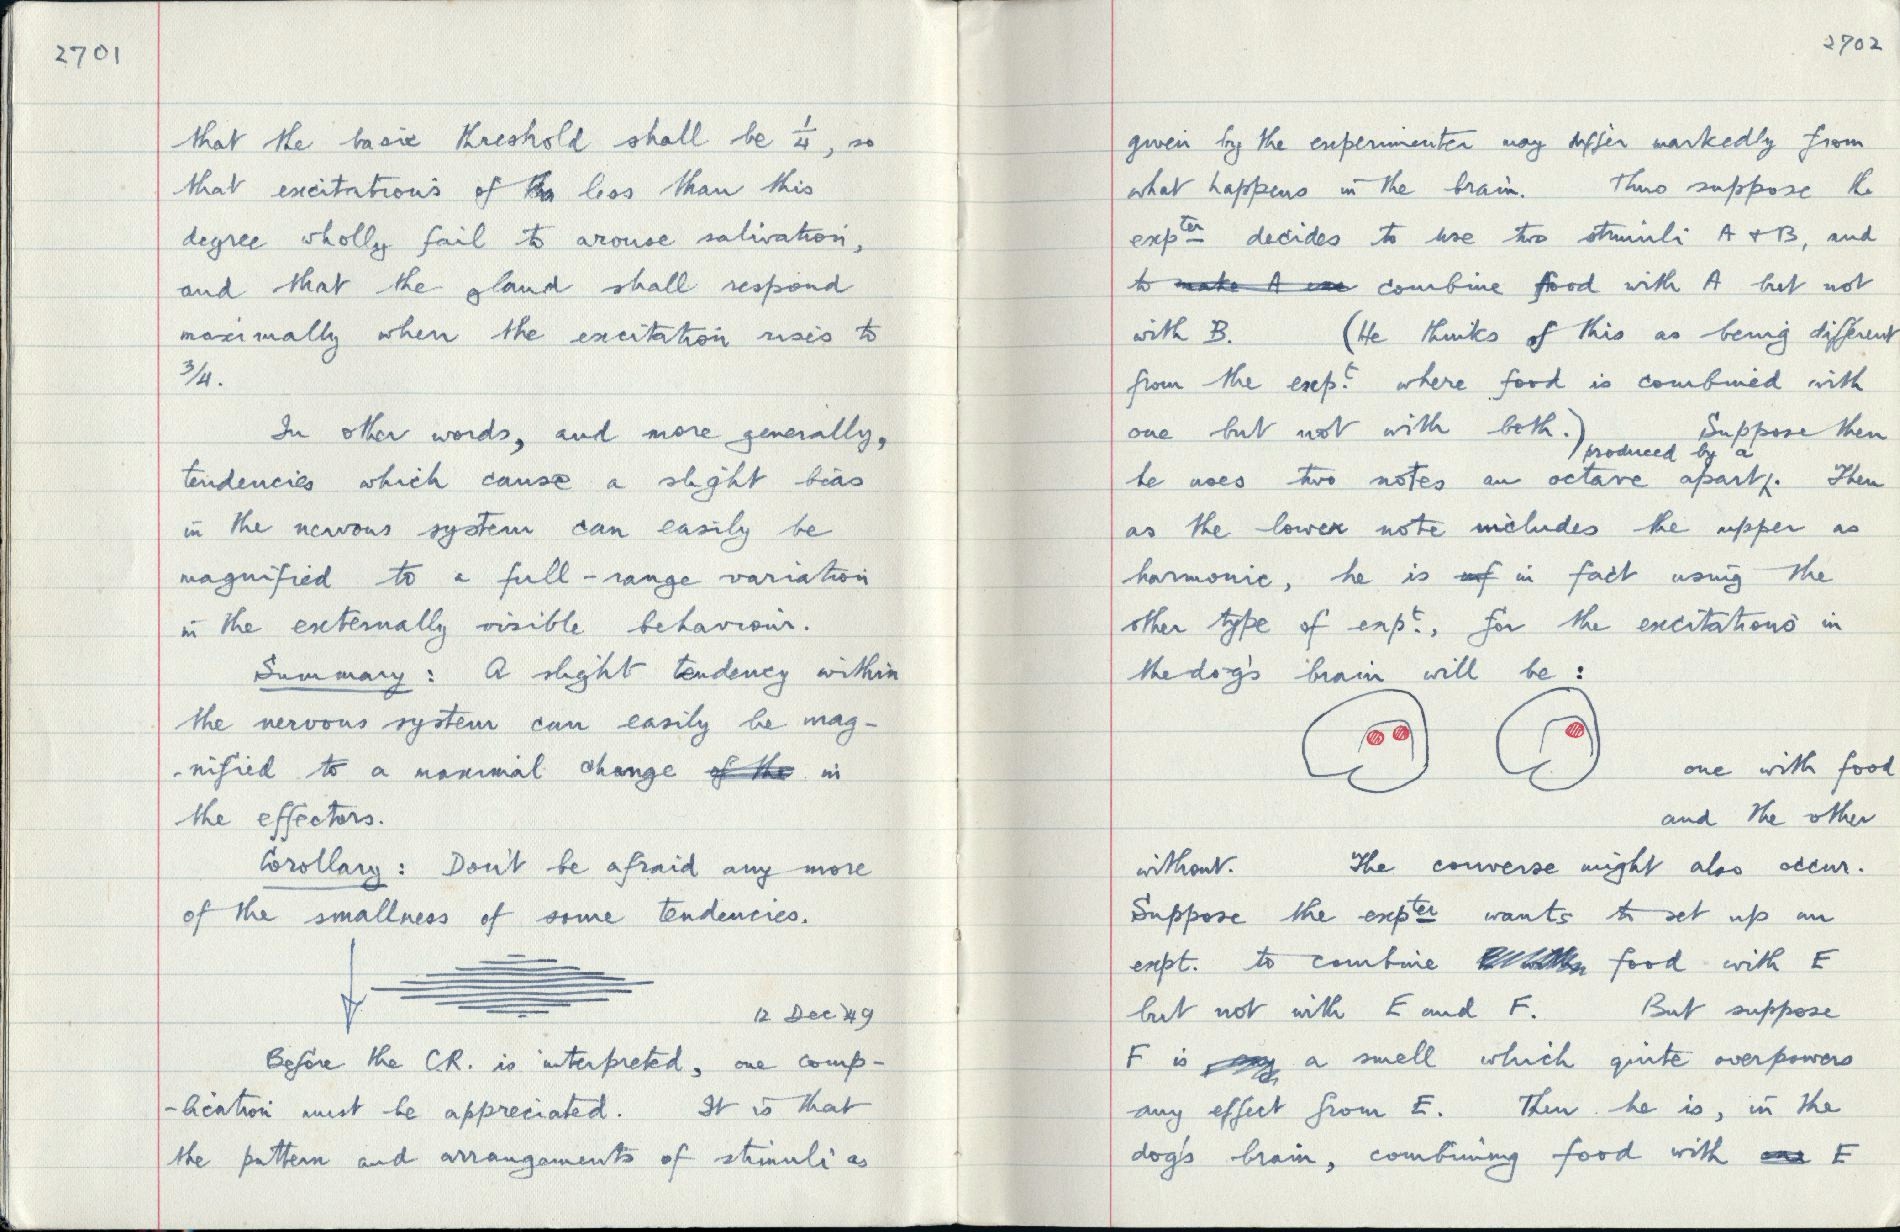 2701
that the basic threshold shall be 1/4, so
that excitations of less than this
degree wholly fail to arouse salivation,
and that the gland shall respond
maximally when the excitation rises to
3/4.
In other words, and more generally,
tendencies which cause a slight bias
in the nervous system can easily be
magnified to a full-range variation
in the externally visible behaviour.
Summary: A slight tendency within
the nervous system can easily be mag-
-nified to a maximal change of the in
the effectors.
Corollary: Don't be afraid any more
of the smallness of some tendencies.
12 Dec '49
Before the CR. is interpreted, one comp-
-lication must be appreciated. It is that
the pattern and arrangements of stimuli as
2702
given by the experimenter may differ markedly from
what happens in the brain. Thus suppose the
expter decides to use two stimuli A + B, and
to make A combine food with A but not
with B. (He thinks of this as being different
from the expt. where food is combined with
one but not with both.) Suppose then
produced by a
he uses two notes an octave apart. Then
as the lower note includes the upper as
harmonic, he is in fact using the
other type of expt., for the excitations in
the dog's brain will be:
one with food
and the other
without. The converse might also occur.
Suppose the expter wants to set up an
expt. to combine food with E
but not with E and F. But suppose
F is a smell which quite overpowers
any effect from E. Then he is, in the
dog's brain, combining food with E